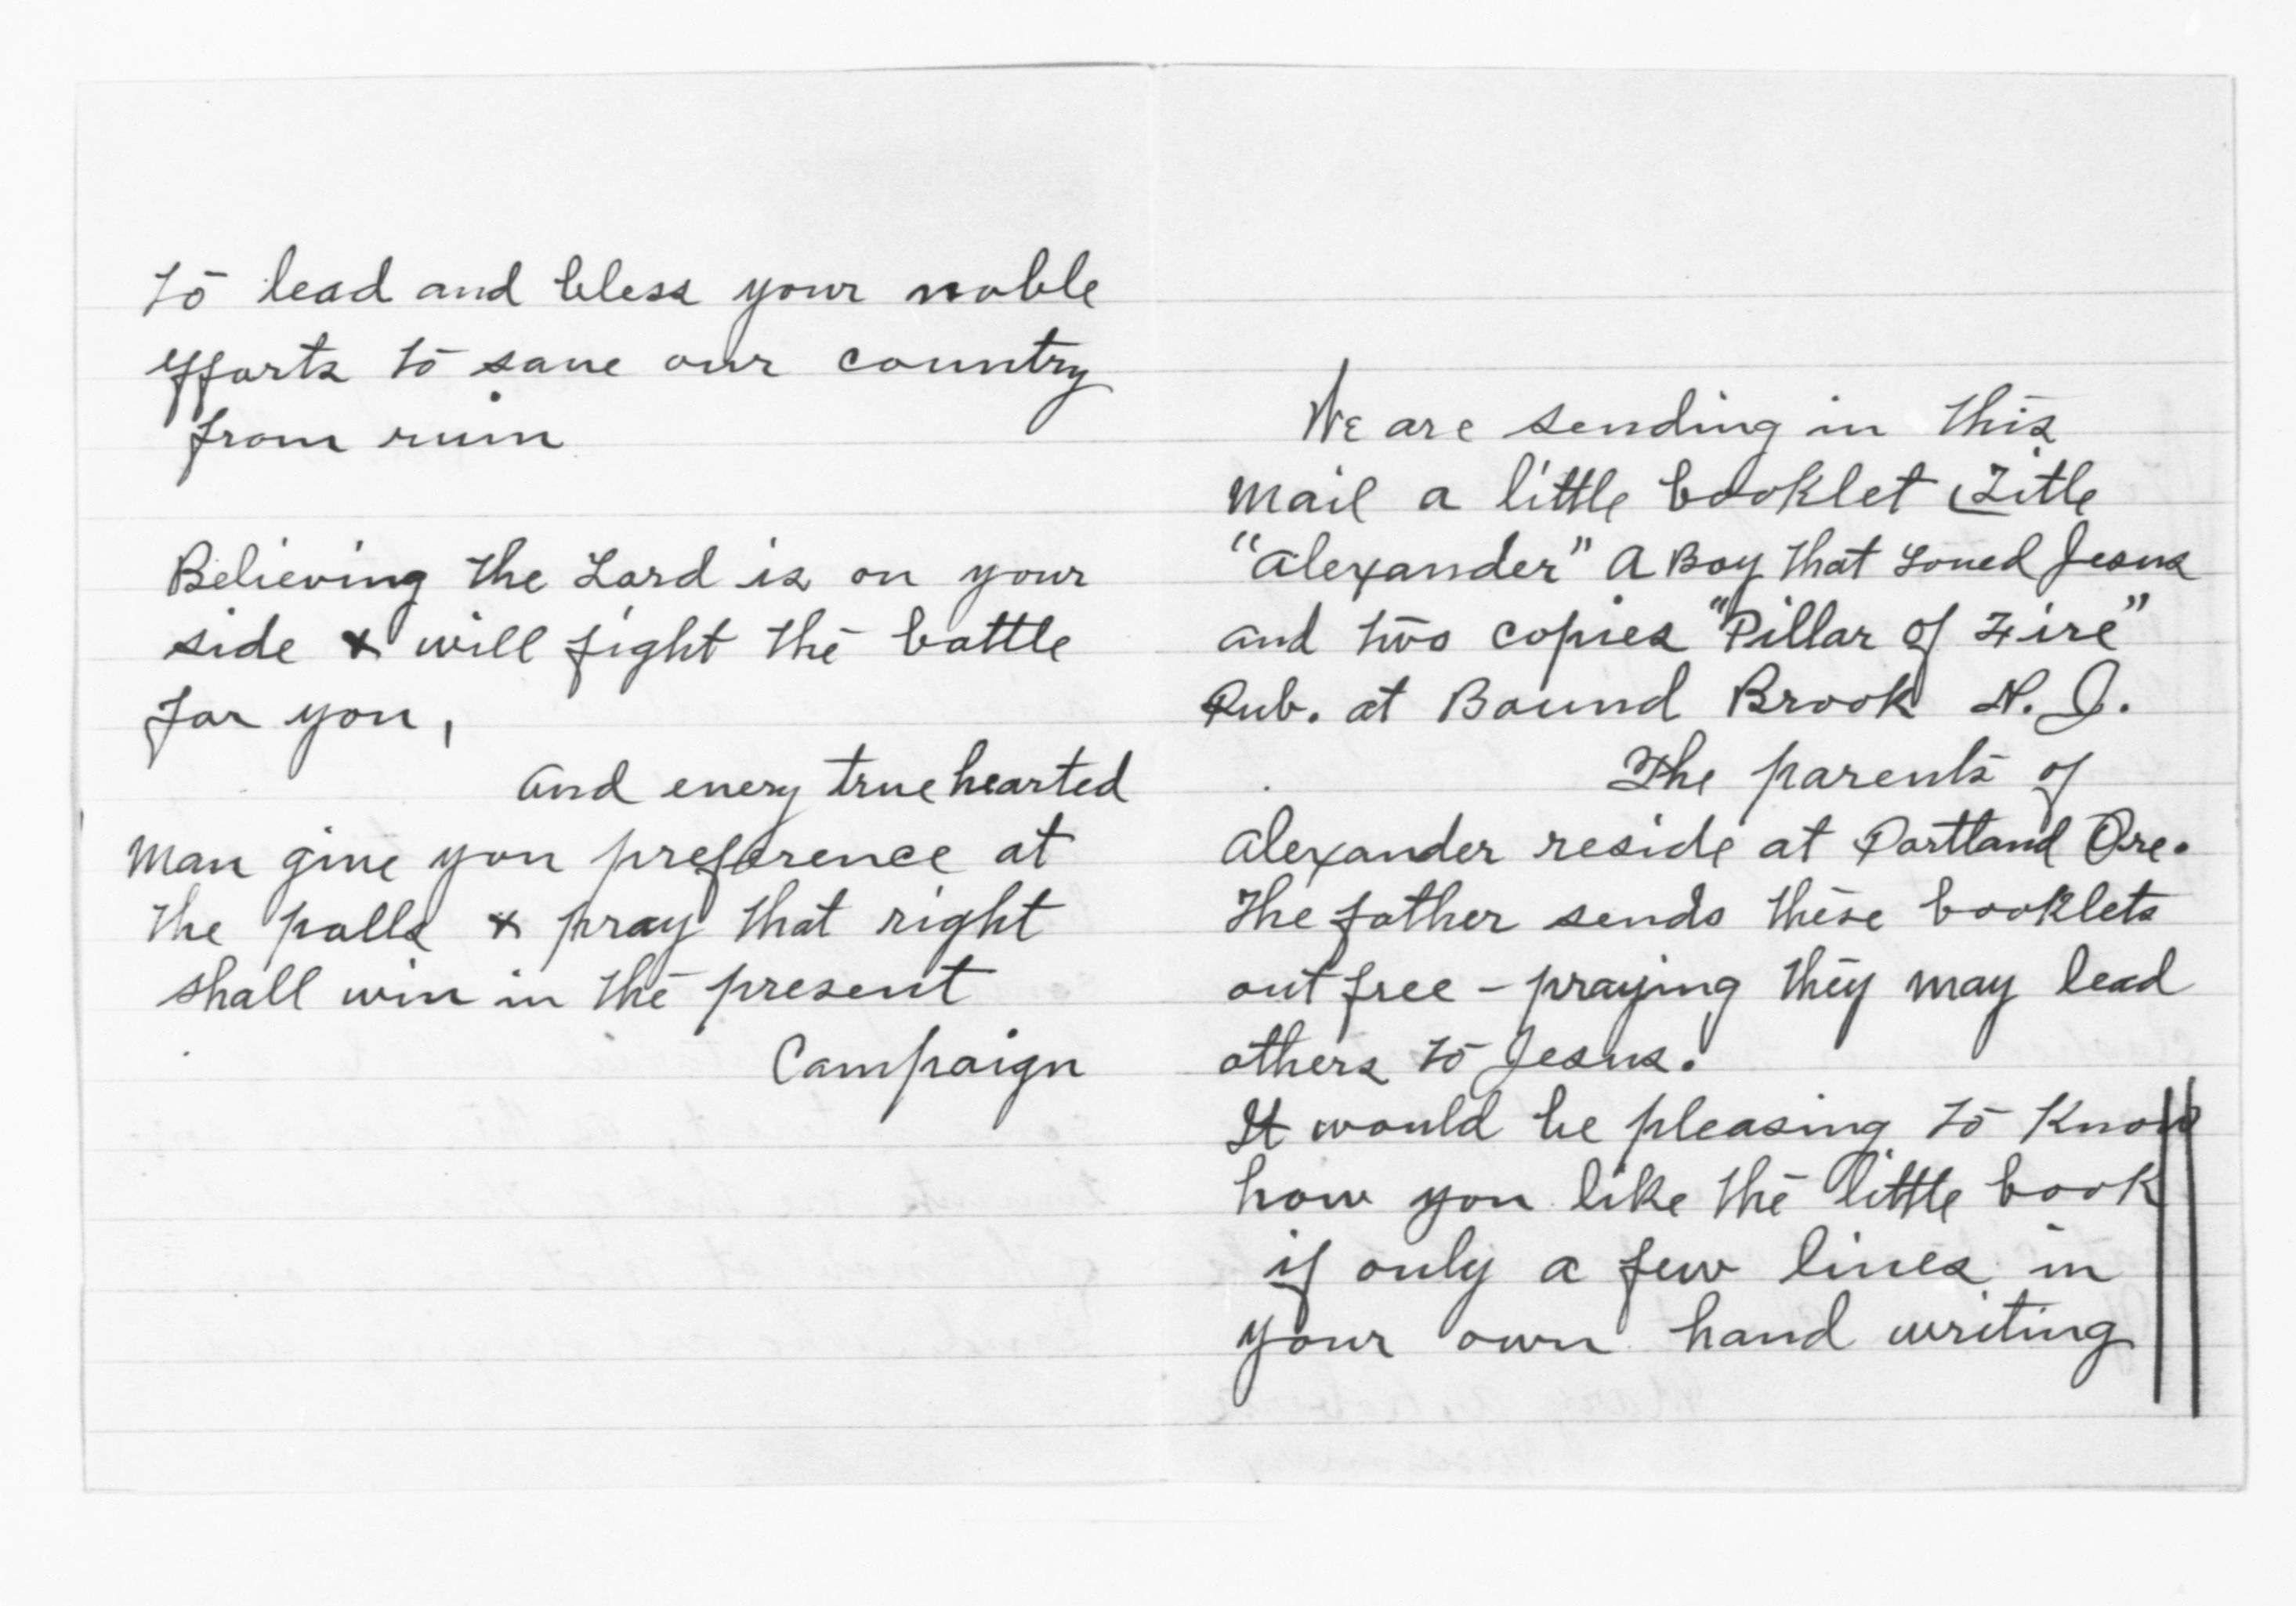 to lead and bless your noble
efforts to save our country
from ruin
Believing the Lord is on your
side & will fight the battle
for you,
and every true hearted
man give you preference at
the polls & pray that right
shall win in the present
Campaign
We are sending in this
mail a little booklet Title
"Alexander" A Boy that Loved Jesus
and two copies "Pillar of Fire"
Pub. at Bound Brook N. J.
The parents of
Alexander reside at Portland Ore.
The father sends these booklets
out free - praying they may lead
others to Jesus.
It would be pleasing to know
how you like the little book
if only a few lines in
your own hand writing